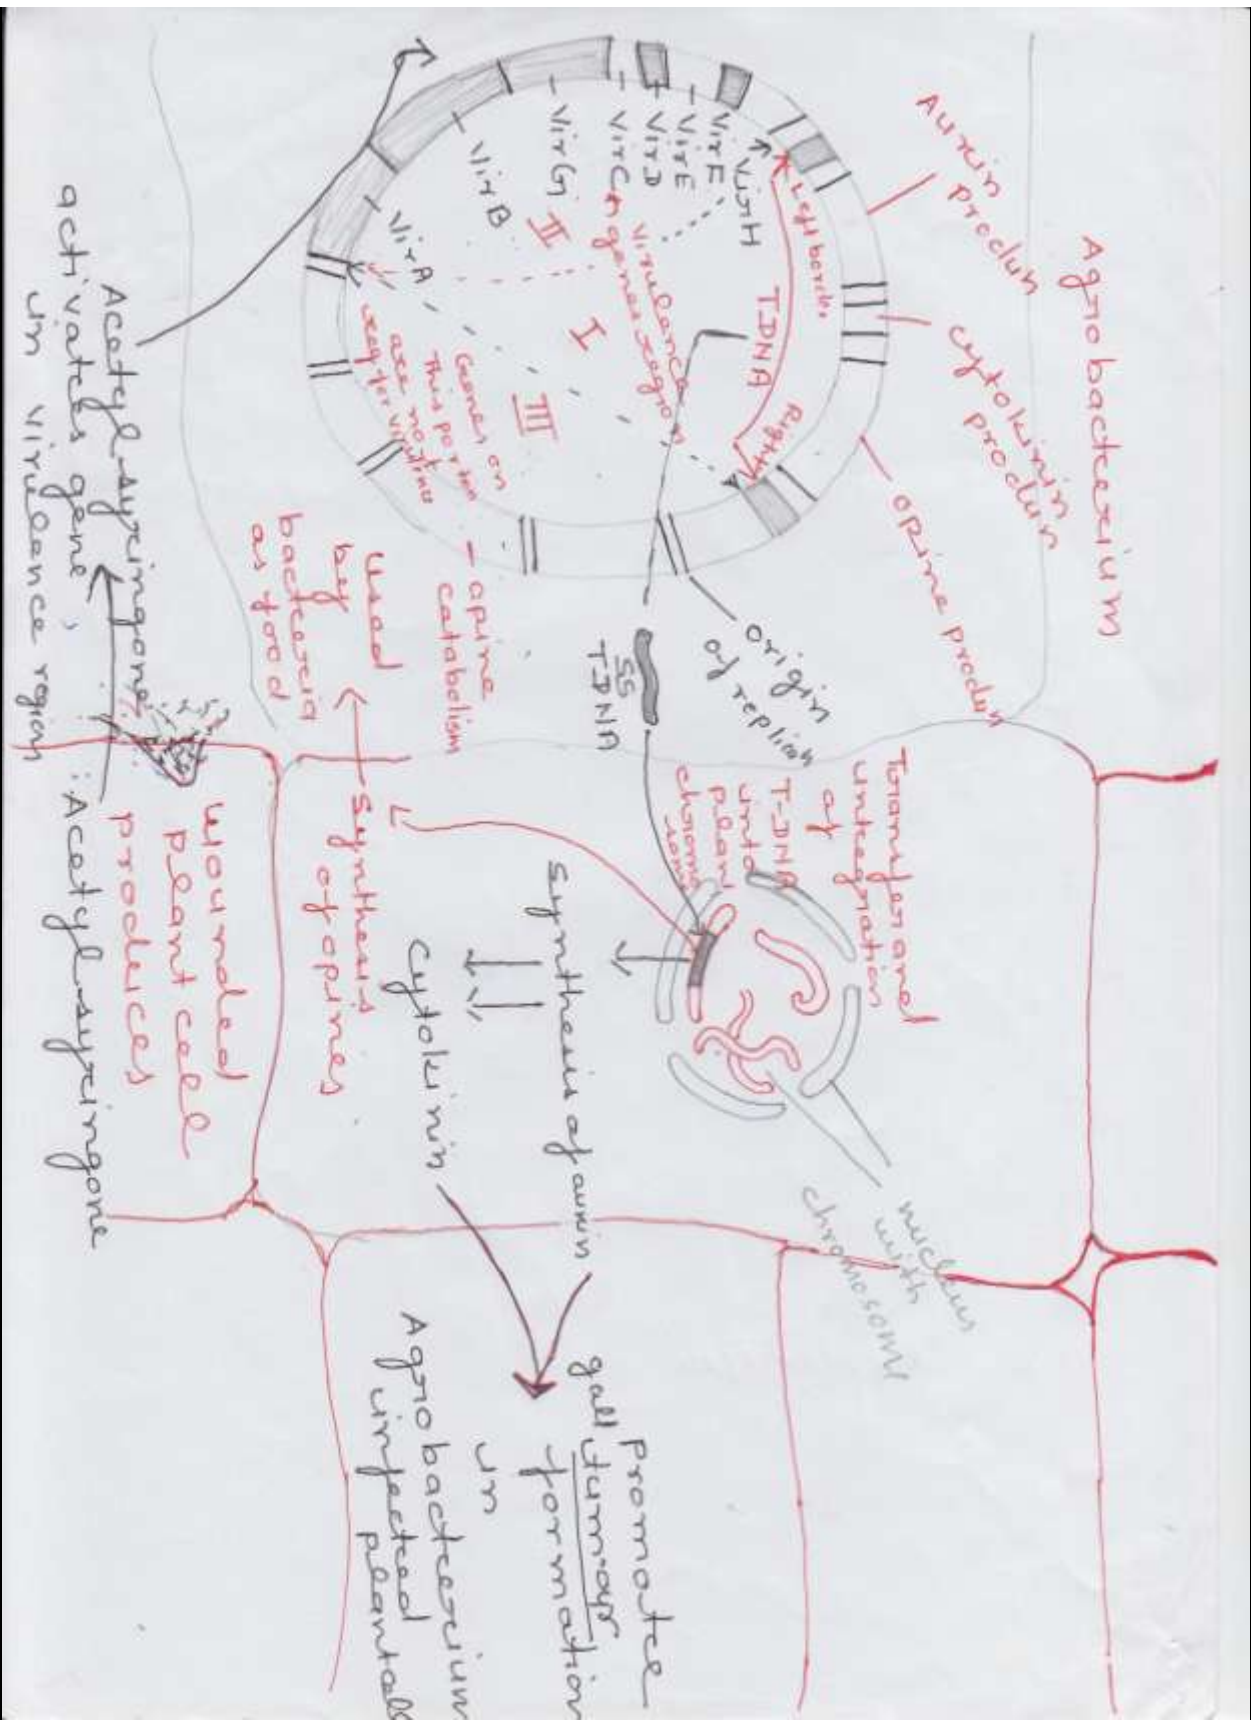 Agrobacterium
Auxin
produn
cytokinin
produn
opine produn
Left border
TDNA
Right
VirH
VirF
VirE
VirD
VirC
VirG
VirB
VirA
Virulance
genes region
I
II
III
Genes on
This portion
are not
req for virulence
- opine
catabolism
origin
of replicon
SS
TDNA
Transfer and
integration
of
T-DNA
into
plant
chromo
some
nucleus
with
chromosome
Synthesis of auxin
Cytokinin
Synthesis
of opines
used
by
bacteria
as food
promote
gall tumour
formation
in
Agrobacterium
infected
plant cell
Wounded
plant cell
produces
Acetyl-syringone
Acetyl-syringone
activates gene,
in virulence region